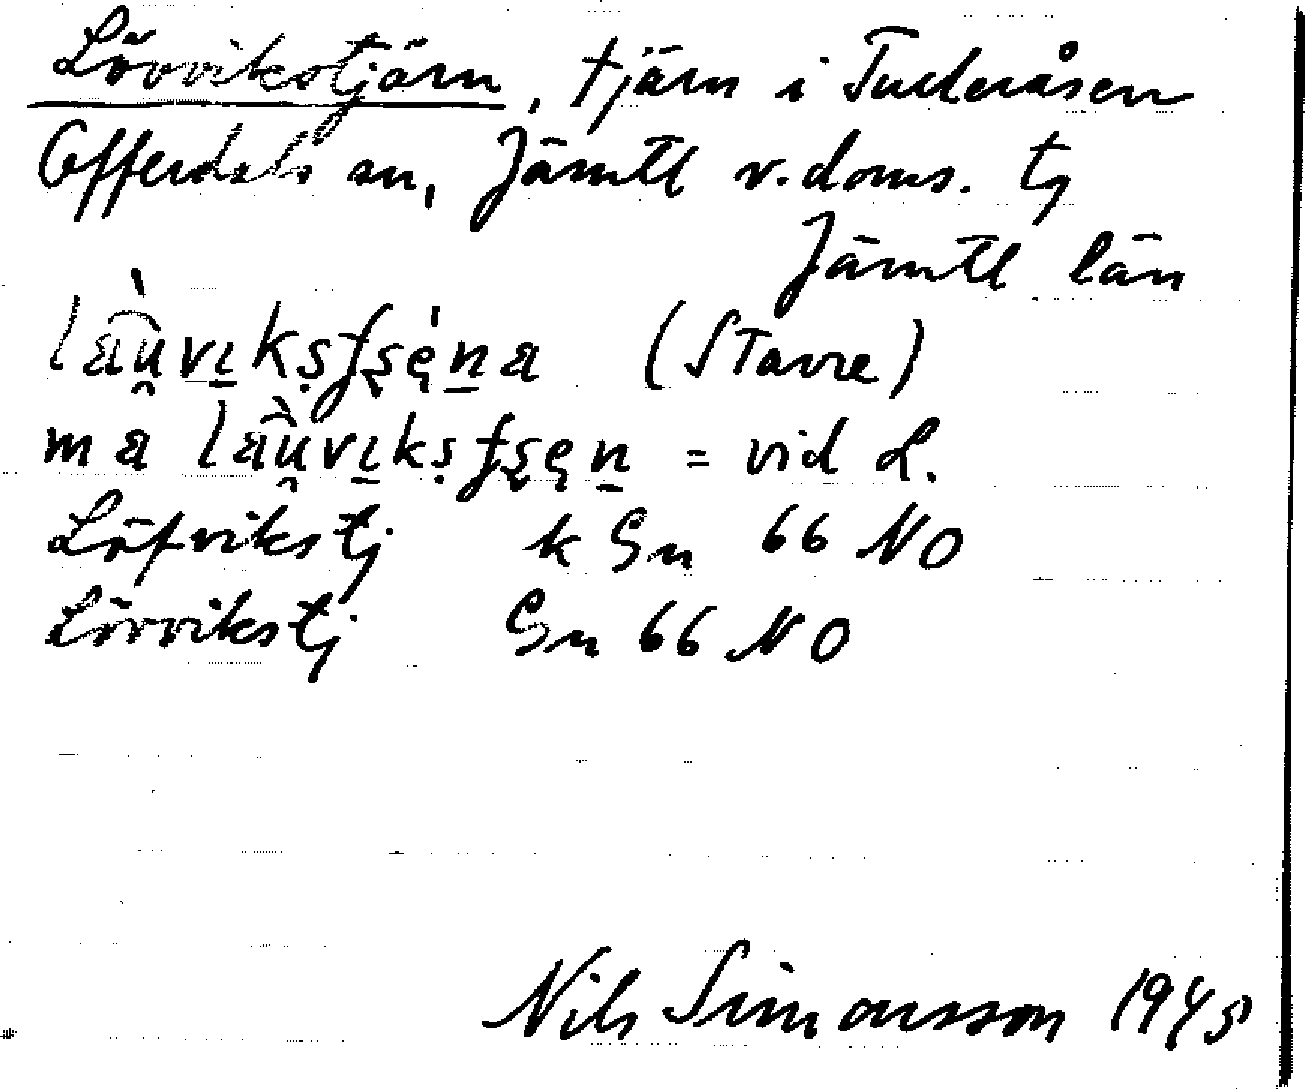 Lövvikstjärn, tjärn i Tulleråsen
Offerdals sn, Jämtl v. doms. tg
Jämtl län
(Stavre)
ma = vid L.
Löfvikstj k Gn 66 NO
Lövvikstj Gn 66 NO
Nils Simonsson 1945